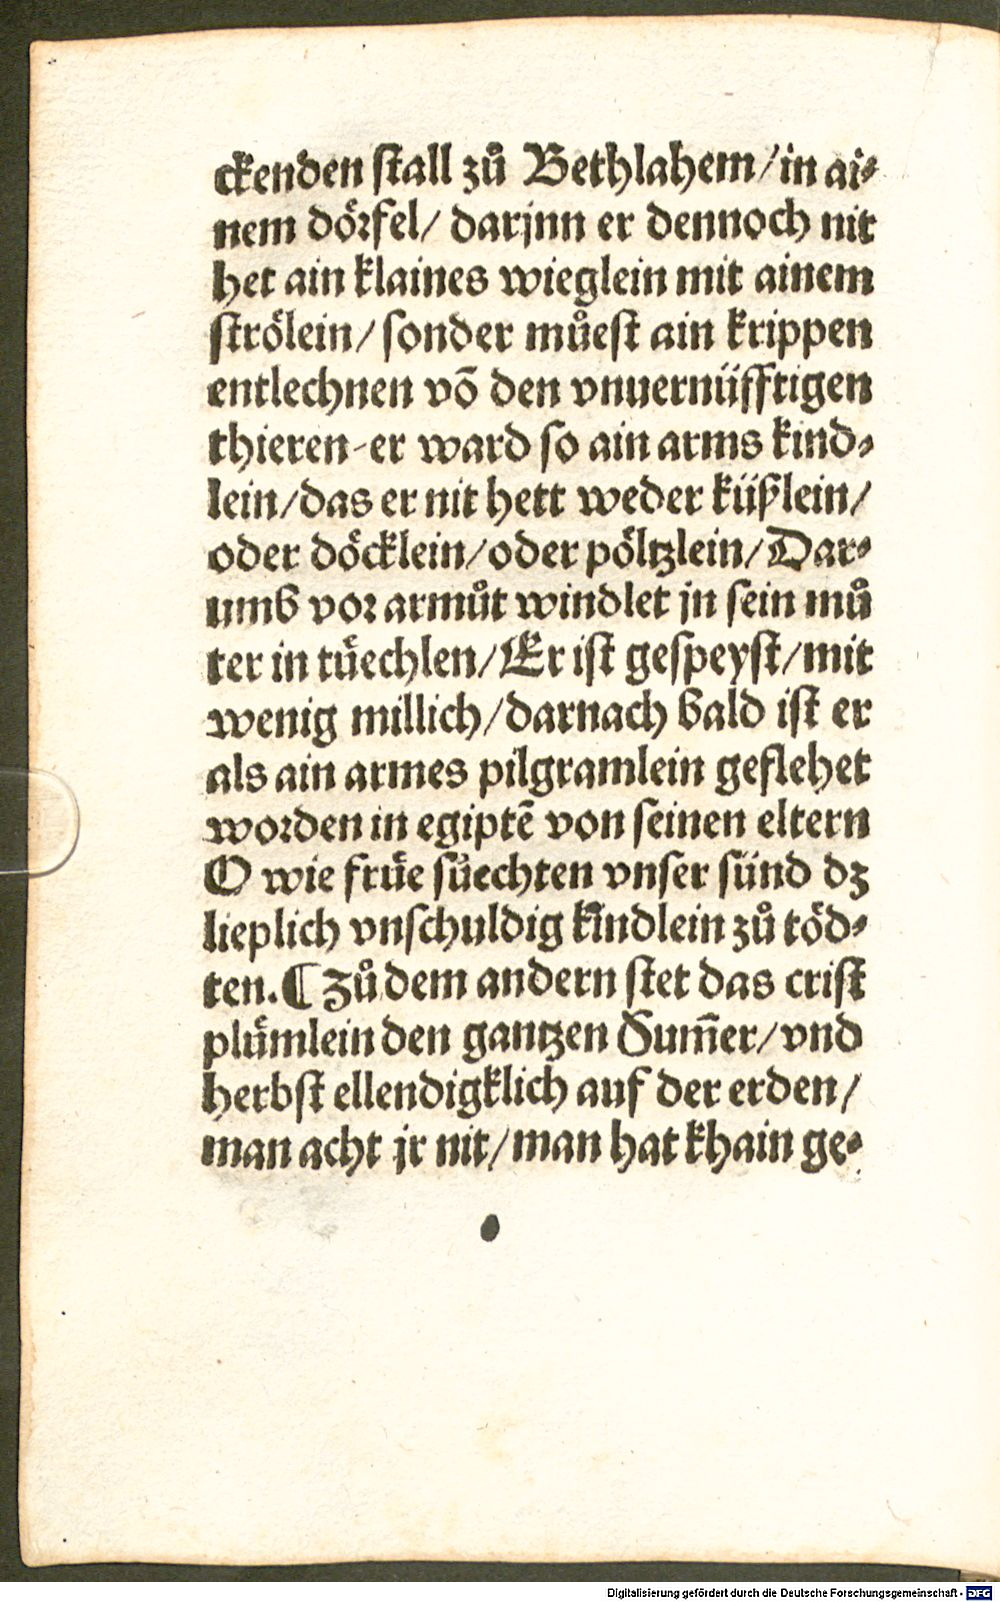 ckenden ſtall zů Bethlahem/in ai⸗
nem dörfel/ darjnn er dennoch nit
het ain klaines wieglein mit ainem
ſtrölein/ ſonder můeſt ain krippen
entlechnen võ den vnuernüfftigen
thieren-er ward ſo ain arms kind⸗
lein/das er nit hett weder küßlein/
oder döcklein/oder pöltzlein/Dar⸗
umb vor armůt windlet jn ſein mů
ter in tüechlen/Er iſt geſpeyſt/mit
wenig millich/darnach bald iſt er
als ain armes pilgramlein geflehet
worden in egiptē von ſeinen eltern
O wie früe ſůechten vnſer ſünd dz
lieplich vnſchuldig kindlein zů töd⸗
ten.¶Zů dem andern ſtet das criſt
plümlein den gantzen Sum̄er/vnd
herbſt ellendigklich auf der erden/
man acht jr nit/man hat khain ge⸗
Digitalisierung gefördert durch die Deutsche Forschungsgemeinschaft - DFG